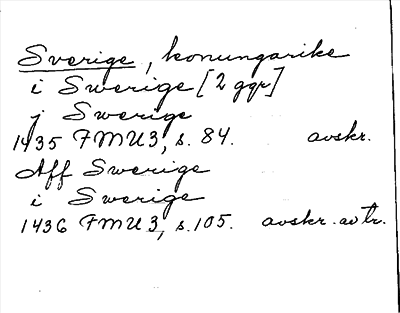 Sverige, konungarike
i Swerige [2 ggr]
j Swerige
1435 FMU 3, s. 84. avskr.
Aff Swerige
i Swerige
1436 FMU 3, s. 105. avskr. av tr.